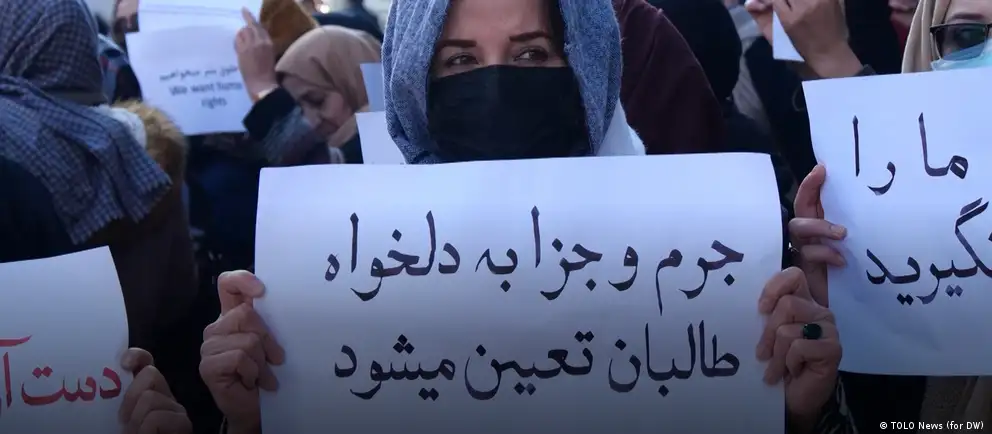 We want human
rights
جرم و جزا به دلخواه
طالبان تعیین میشود
ما را
نگیرید
دست
© TOLO News (for DW)